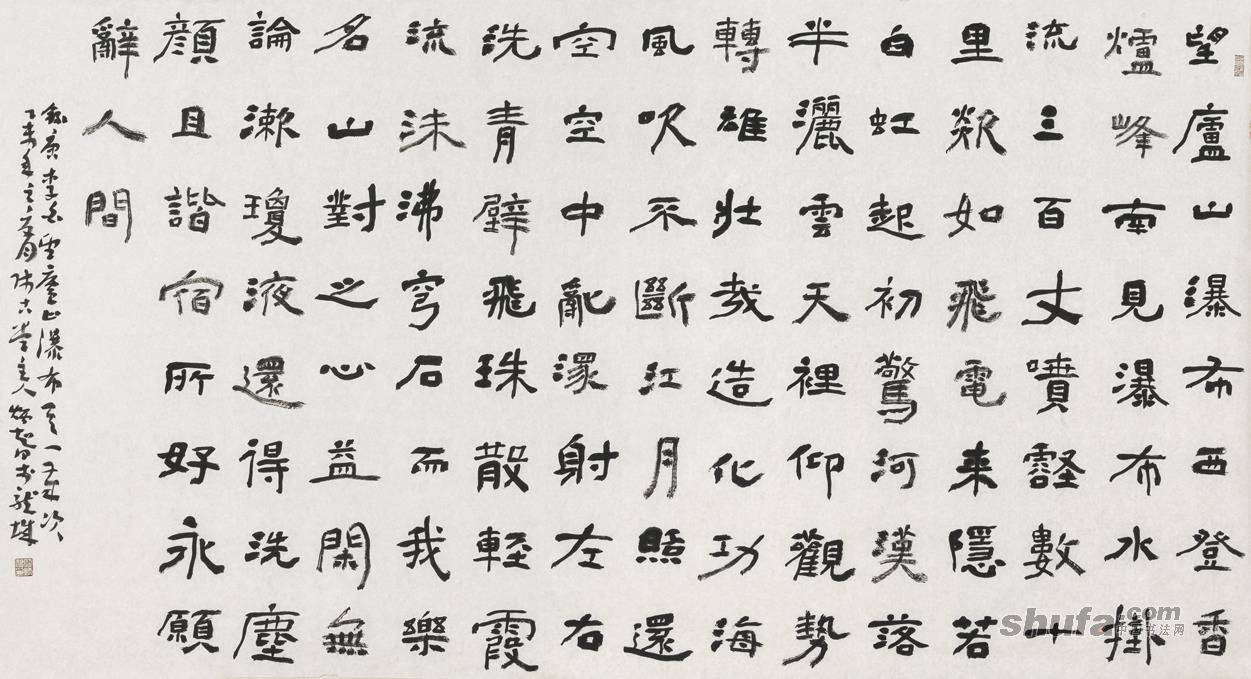 望廬山瀑布西登香
爐峰南見瀑布水掛
流三百丈噴壑數十
里欻如飛電来隱若
白虹起初驚河漢落
半灑雲天裡仰觀勢
轉雄壯哉造化功海
風吹不斷江月照還
空空中亂潈射左右
洗青壁飛珠散輕霞
流沫沸穹石而我樂
名山對之心益閑無
論漱瓊液還得洗塵
顏且諧宿所好永願
辭人間
李白望廬山瀑布其一
shufa.com
中国书法网